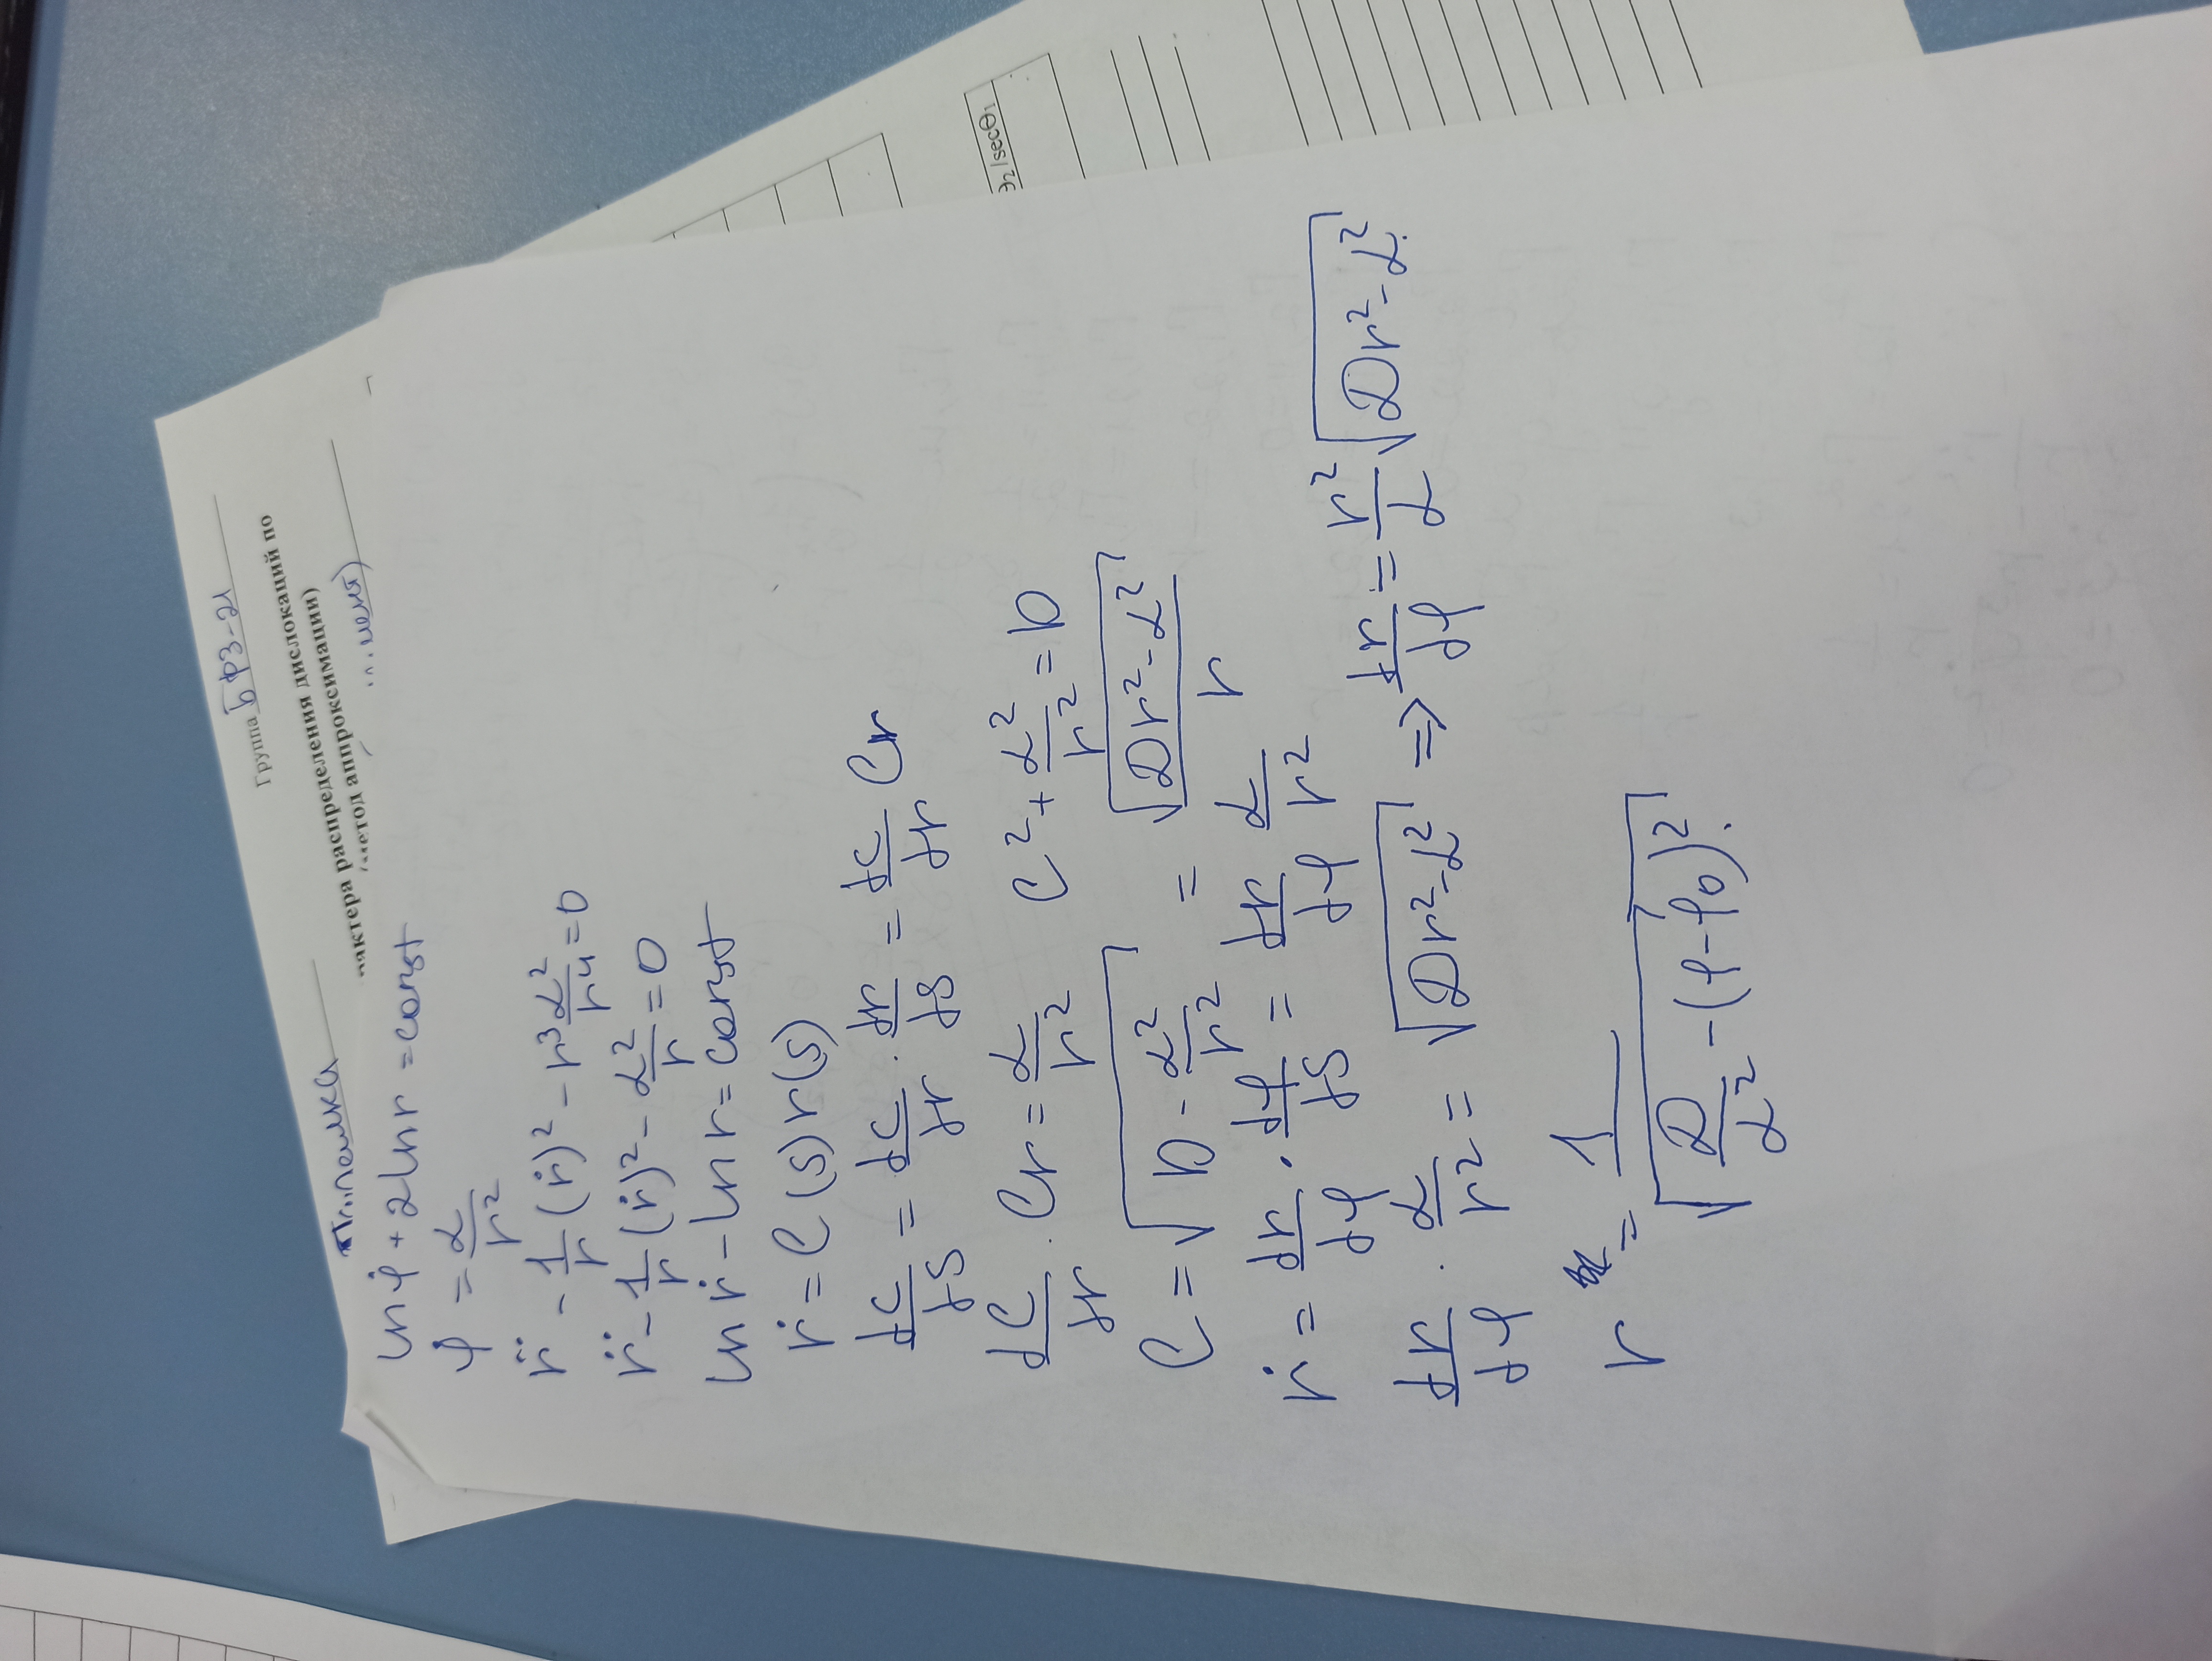 Группа БФЗ-21
рактера распределения дислокаций по
(метод аппроксимации)
ln φ̇ + 2 ln r = const
φ̇ = α/r²
r̈ - 1/r (ṙ)² - r³ α²/r⁴ = 0
r̈ - 1/r (ṙ)² - α²/r = 0
ln ṙ - ln r = const
ṙ = C(s) r(s)
dc/ds = dc/dr · dr/ds = dc/dr Cr
dC/dr · Cr = α/r² C² + α²/r² = D
Э₂/secΘ₁
C = √(D - α²/r²) = √(Dr² - α²)/r
ṙ = dr/dφ · dφ/ds = dr/dφ α/r²
dr/dφ · α/r² = √(Dr² - α²) => dr/dφ = r²/α √(Dr² - α²)
r = 1/√(D/α² - (φ - φ₀)²)